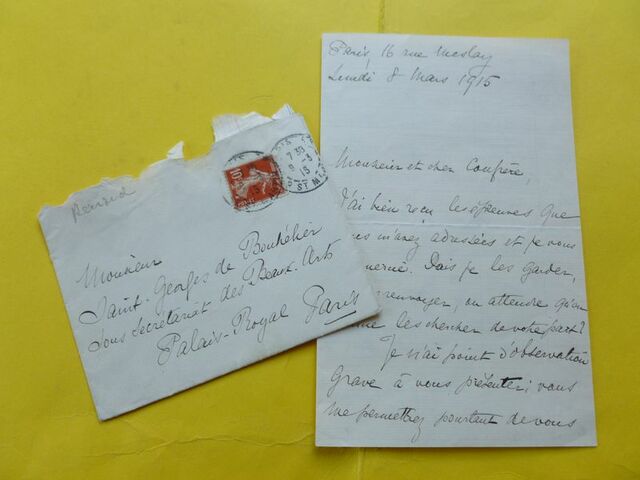 Paris, 16 rue Meslay
Lundi 8 Mars 1915
Monsieur et cher Confrère,
J'ai bien reçu les épreuves que
m'avez adressées et je vous
Dois je les garder,
renvoyer, ou attendre qu'on
les chercher de votre part?
Je n'ai point d'observation
grave à vous présenter; vous
me permettrez pourtant de vous
Renard
Monsieur
Saint-Georges de Bouhélier
Sous Secrétariat des Beaux-Arts
Palais-Royal Paris
10
7 30
9 - 3
15
ST M